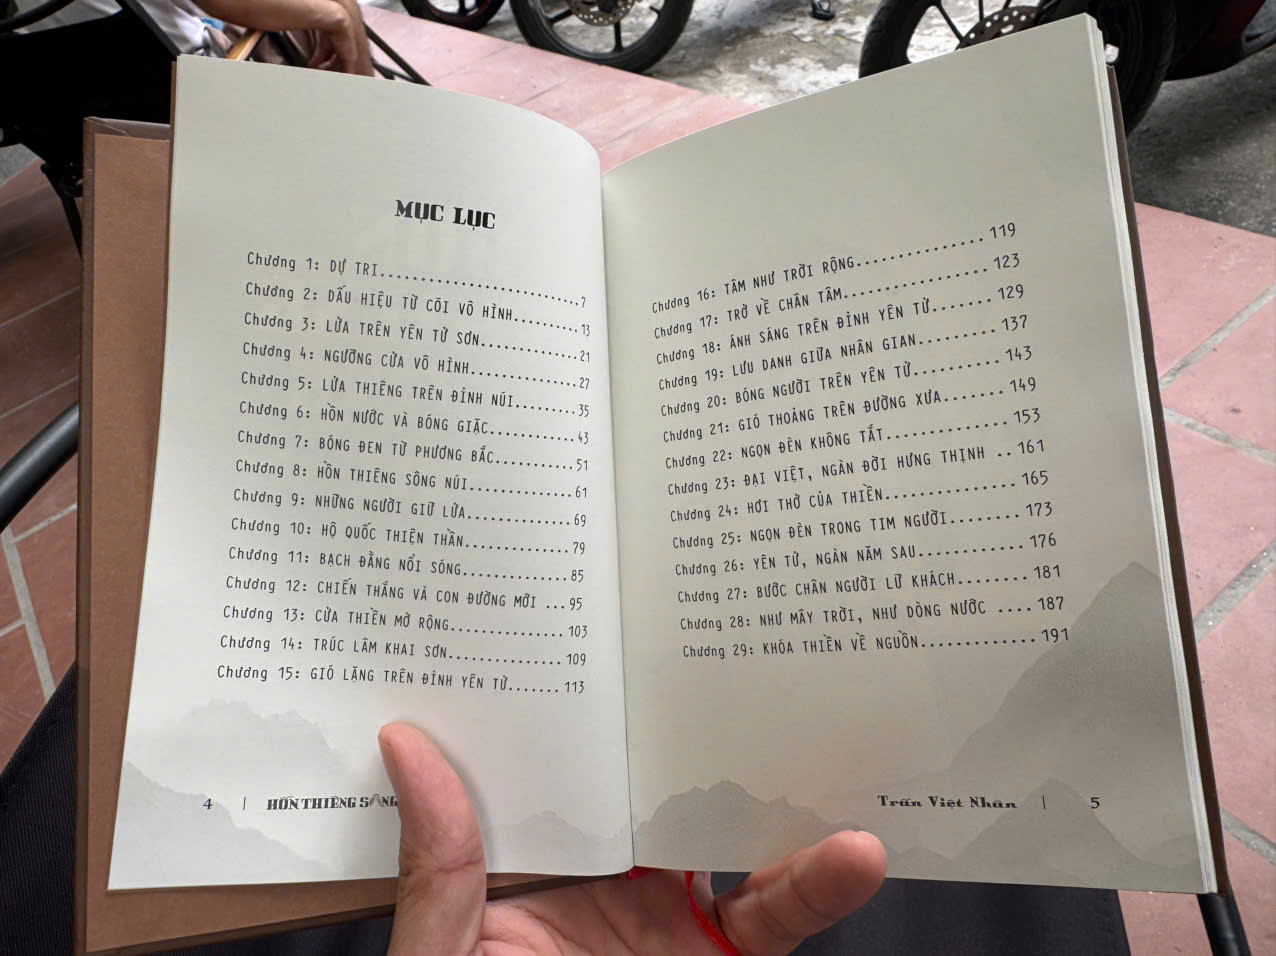 MỤC LỤC
Chương 1: DỰ TRI............................7
Chương 2: DẤU HIỆU TỪ CÕI VÔ HÌNH.........13
Chương 3: LỬA TRÊN YÊN TỬ SƠN.............21
Chương 4: NGƯỠNG CỬA VÔ HÌNH..............27
Chương 5: LỬA THIÊNG TRÊN ĐỈNH NÚI........35
Chương 6: HỒN NƯỚC VÀ BÓNG GIẶC...........43
Chương 7: BÓNG ĐEN TỪ PHƯƠNG BẮC..........51
Chương 8: HỒN THIÊNG SÔNG NÚI.............61
Chương 9: NHỮNG NGƯỜI GIỮ LỬA.............69
Chương 10: HỘ QUỐC THIỆN THẦN.............79
Chương 11: BẠCH ĐẰNG NỔI SÓNG.............85
Chương 12: CHIẾN THẮNG VÀ CON ĐƯỜNG MỚI ...95
Chương 13: CỬA THIỀN MỞ RỘNG..............103
Chương 14: TRÚC LÂM KHAI SƠN..............109
Chương 15: GIÓ LẶNG TRÊN ĐỈNH YÊN TỬ.......113
4 | HỒN THIÊNG SÔNG
Chương 16: TÂM NHƯ TRỜI RỘNG...............119
Chương 17: TRỞ VỀ CHÂN TÂM.................123
Chương 18: ÁNH SÁNG TRÊN ĐỈNH YÊN TỬ.......129
Chương 19: LƯU DANH GIỮA NHÂN GIAN.........137
Chương 20: BÓNG NGƯỜI TRÊN YÊN TỬ..........143
Chương 21: GIÓ THOẢNG TRÊN ĐƯỜNG XƯA.......149
Chương 22: NGỌN ĐÈN KHÔNG TẮT..............153
Chương 23: ĐẠI VIỆT, NGÀN ĐỜI HƯNG THỊNH ..161
Chương 24: HƠI THỞ CỦA THIỀN...............165
Chương 25: NGỌN ĐÈN TRONG TIM NGƯỜI........173
Chương 26: YÊN TỬ, NGÀN NĂM SAU............176
Chương 27: BƯỚC CHÂN NGƯỜI LỮ KHÁCH........181
Chương 28: NHƯ MÂY TRỜI, NHƯ DÒNG NƯỚC ....187
Chương 29: KHÓA THIỀN VỀ NGUỒN.............191
Trần Việt Nhân | 5